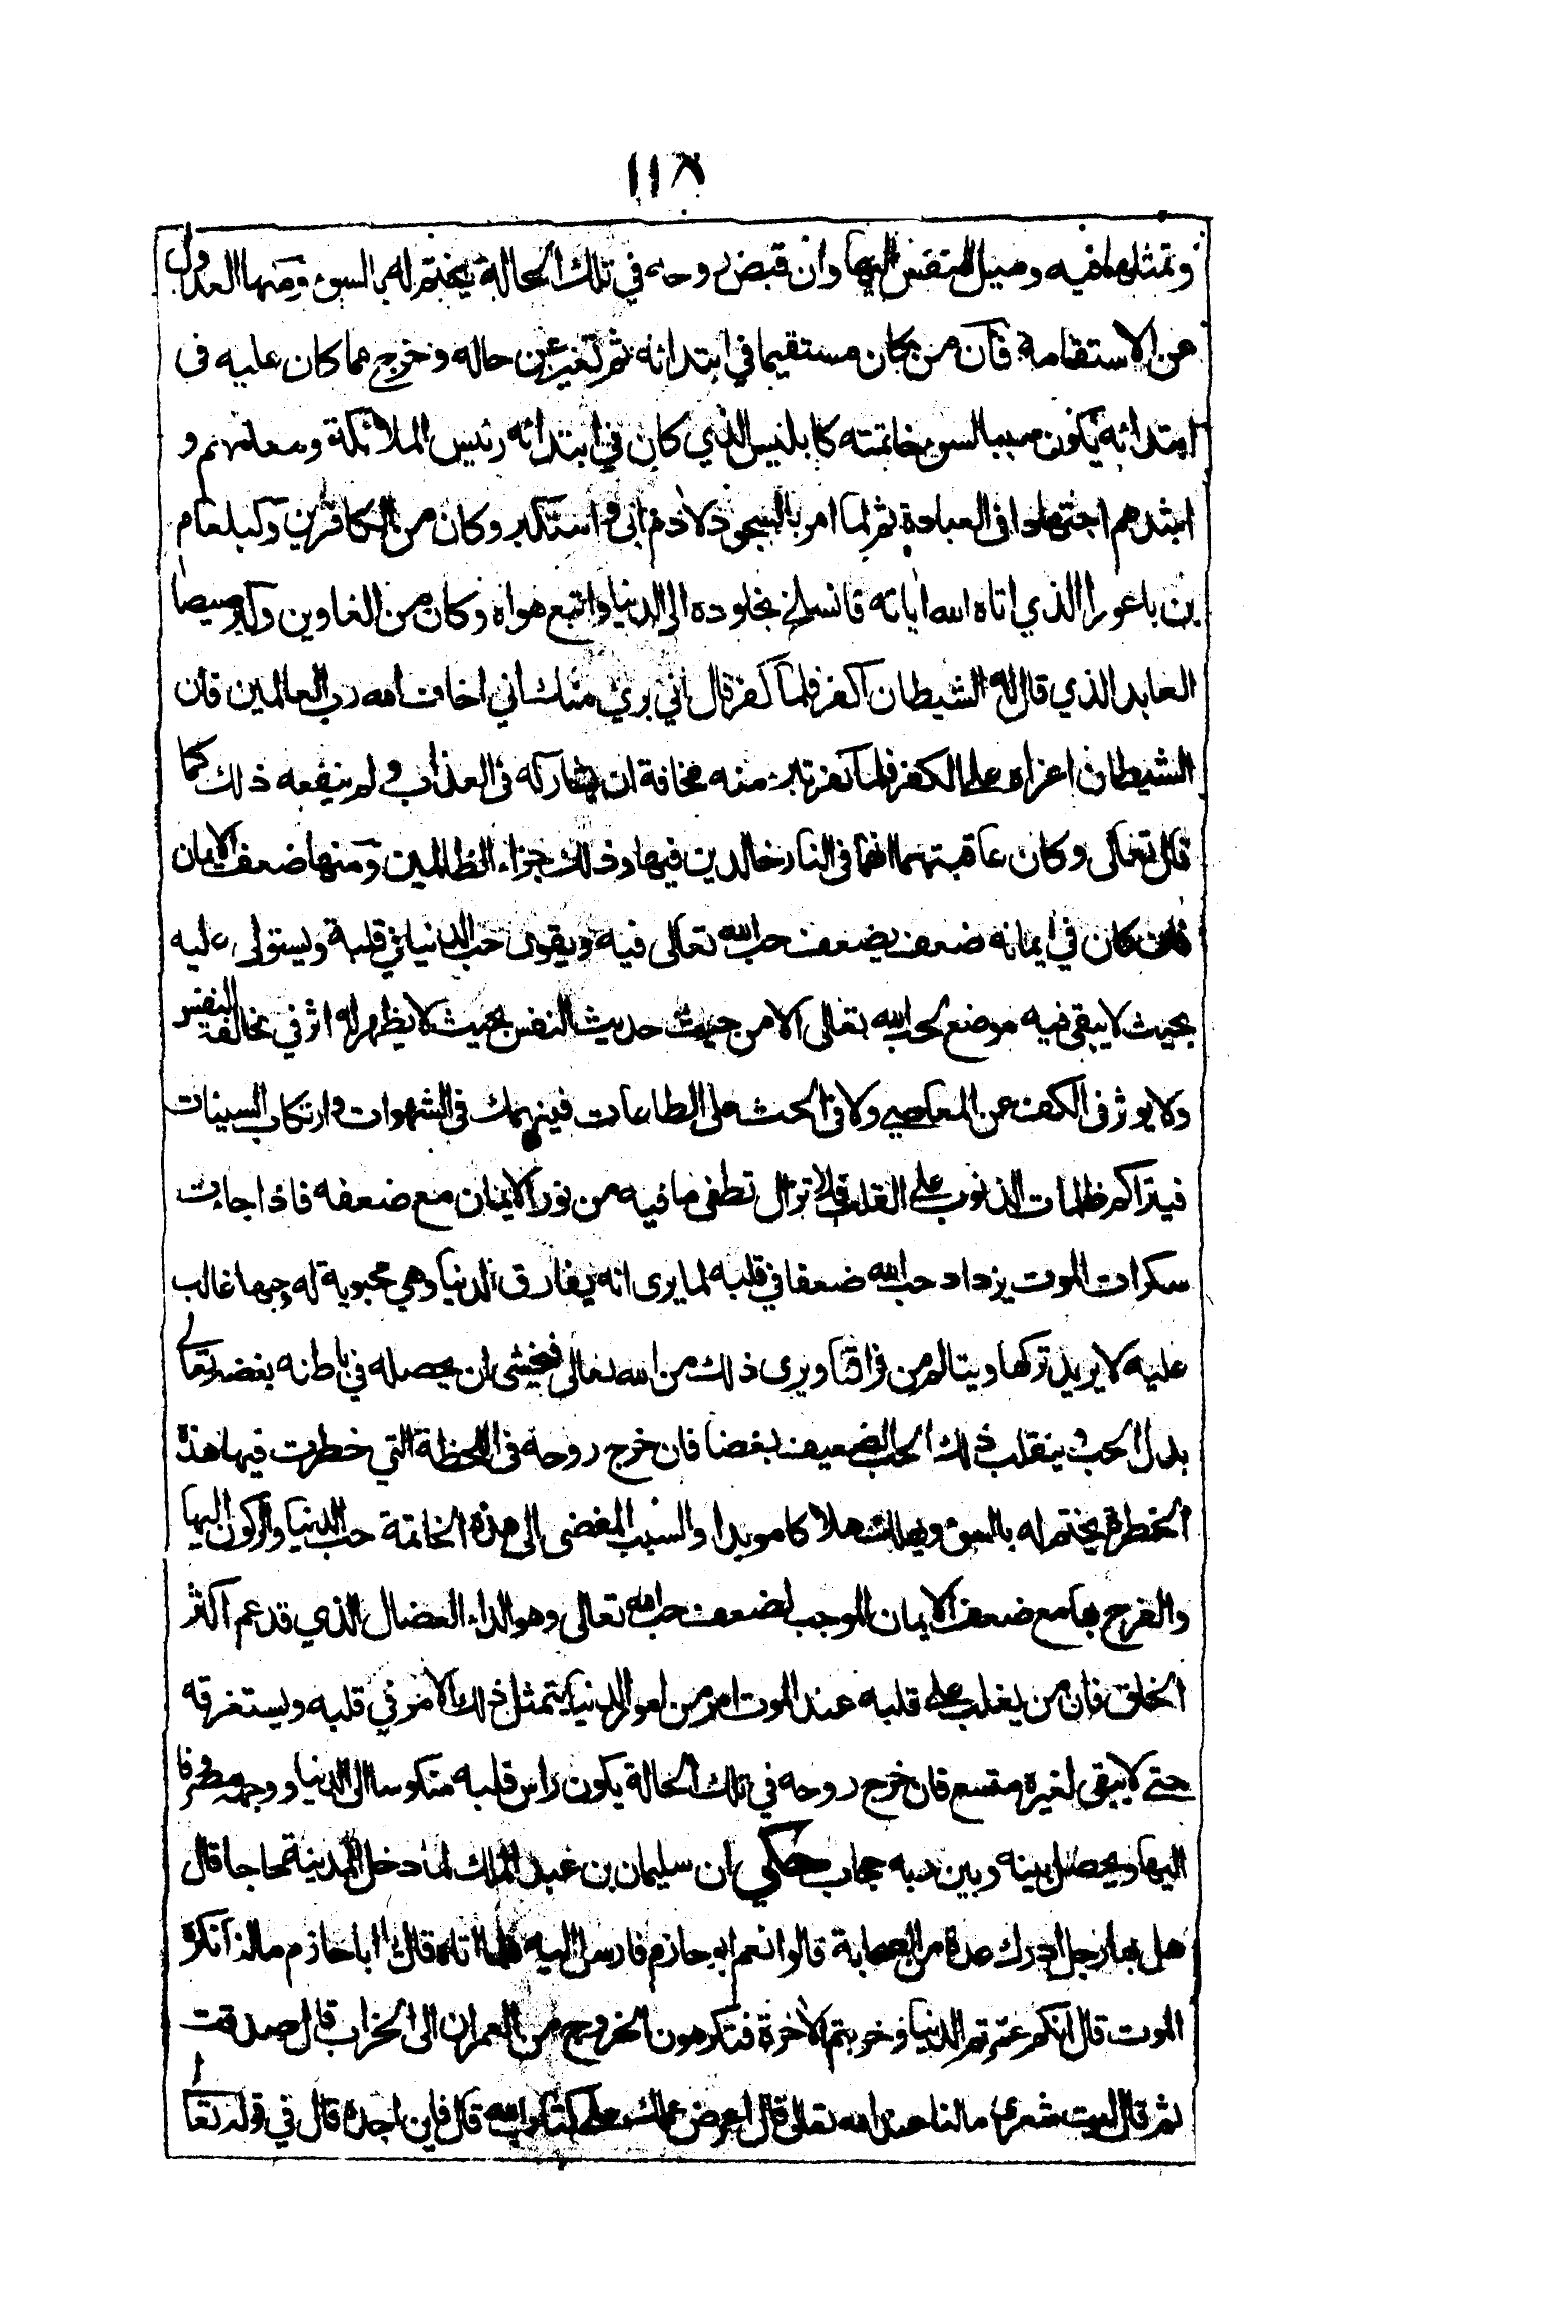 ١١٨
وتمثلها فيه وميل النفس اليها وان قبض روحه في تلك الحالة يختم له بالسوء ومنها العدول
عن الاستقامة فان من كان مستقيما في ابتدائه ثم تغير عن حاله وخرج مما كان عليه في
ابتدائه يكون سببا لسوء خاتمته كابليس الذي كان في ابتدائه رئيس الملائكة ومعلمهم و
اشدهم اجتهادا في العبادة ثم لما امر بالسجود لادم ابى واستكبر وكان من الكافرين وكبلعام
بن باعورا الذي اتاه الله اياته فانسلخ بخلوده الى الدنيا واتبع هواه وكان من الغاوين وكبرصيصا
العابد الذي قال له الشيطان اكفر فلما كفر قال اني برئ منك اني اخاف الله رب العالمين فان
الشيطان اغراه على الكفر فلما كفر تبرء منه مخافة ان يشاركه في العذاب ولم ينفعه ذلك كما
قال تعالى وكان عاقبتهما انهما في النار خالدين فيها وذلك جزاء الظالمين ومنها ضعف الايمان
فان من كان في ايمانه ضعف يضعف حب الله تعالى فيه ويقوى حب الدنيا في قلبه ويستولى عليه
بحيث لا يبقى فيه موضع لحب الله تعالى الا من حيث حديث النفس بحيث لا يظهر له اثر في مخالفة النفس
ولا يوثر في الكف عن المعاصي ولا في الحث على الطاعات فينهمك في الشهوات وارتكاب السيئات
فيتراكم ظلمات الذنوب على القلب فلا تزال تطفى ما فيه من نور الايمان مع ضعفه فاذا جاءت
سكرات الموت يزداد حب الله ضعفا في قلبه لما يرى انه يفارق الدنيا وهي محبوبة له وحبها غالب
عليه لا يريد تركها ويتالم من فراقها ويرى ذلك من الله تعالى فيخشى ان يحصل له في باطنه بغضه تعالى
بدل الحب وينقلب ذلك الحب الضعيف بغضا فان خرج روحه في اللحظة التي خطرت فيها هذه
الخطرة يختم له بالسوء ويهلك هلاكا موبدا والسبب المفضى الى هذه الخاتمة حب الدنيا والركون اليها
والفرح بها مع ضعف الايمان الموجب لضعف حب الله تعالى وهو الداء العضال الذي قد عم اكثر
الخلق فان من يغلب على قلبه عند الموت امر من امور الدنيا يتمثل ذلك الامر في قلبه ويستغرقه
حتى لا يبقى لغيره متسع فان خرج روحه في تلك الحالة يكون راس قلبه منكوسا الى الدنيا ووجهه مصروفا
اليها ويحصل بينه وبين ربه حجاب حكي ان سليمان بن عبد الملك لما دخل المدينة حاجا قال
هل بها رجل ادرك عدة من الصحابة قالوا نعم ابو حازم فارسل اليه فلما اتاه قال يا ابا حازم مالنا نكره
الموت قال انكم عمرتم الدنيا وخربتم الاخرة فتكرهون الخروج من العمران الى الخراب قال صدقت
ثم قال ليت شعري مالنا عند الله تعالى قال اعرض عملك على كتاب الله قال فاين اجده قال في قوله تعالى